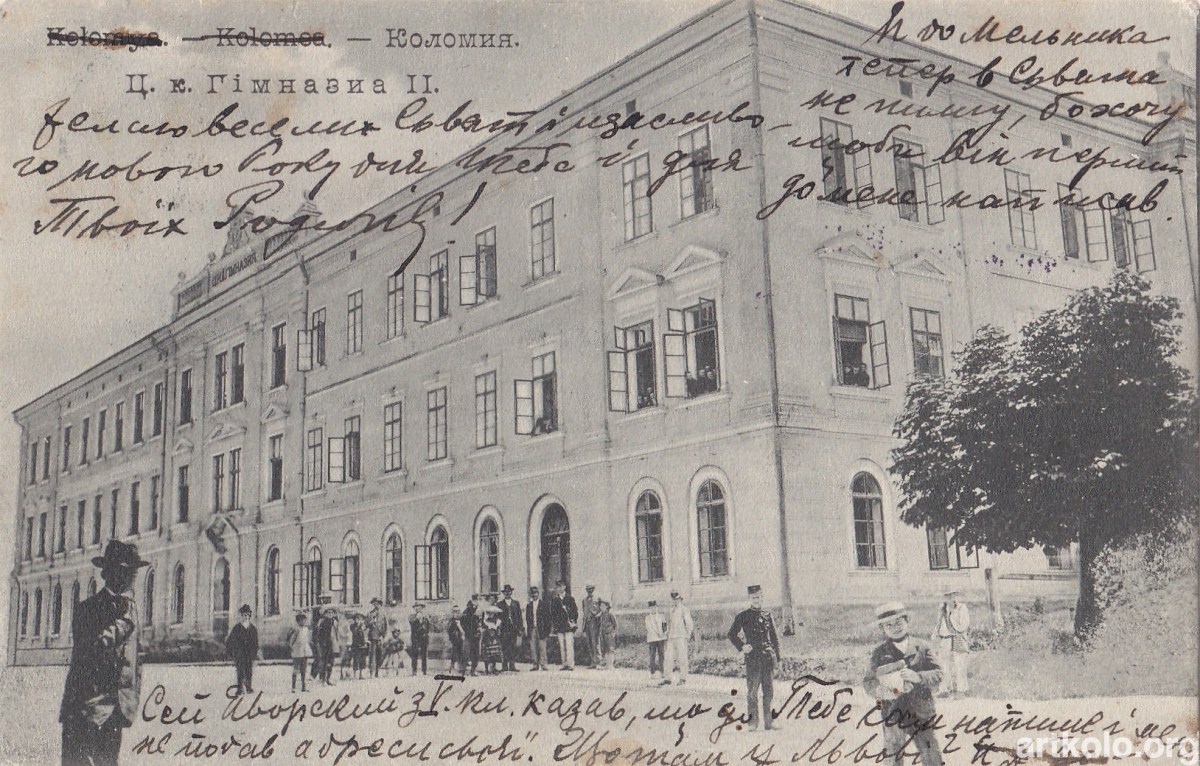 Kołomya. — Kolomea. — Коломия.
Ц. к. Гімназиа II.
Желаю веселих Сьват і щасливо-
го нового Року для Тебе і для
Твоїх Родичів!
И до Мельника
тепер в Сьвята
не пишу, бо хочу
щоби він перший
до мене написав.
Сей Яворский з V. кл. казав, що до Тебе сам напише і не
подав адреси своєї. Що там у Львові?
arikolo.org